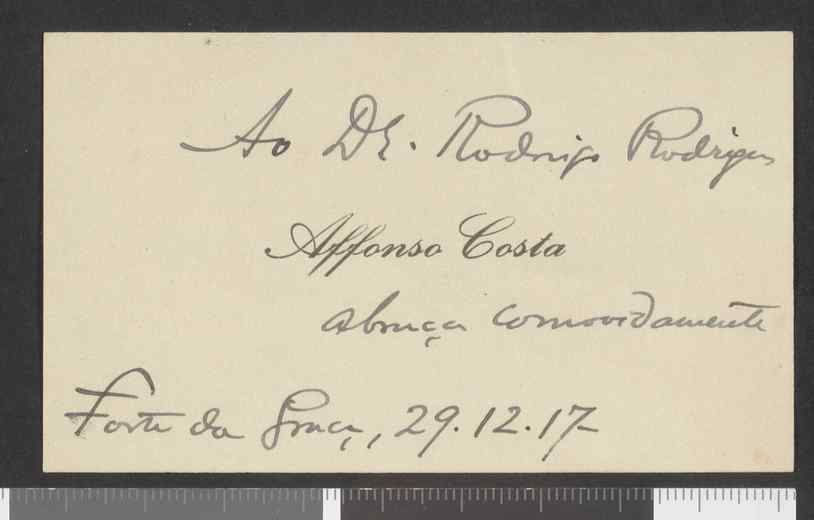 Ao Dr. Rodrigo Rodrigues
Affonso Costa
abraça comovidamente
Forte da Graça, 29.12.17